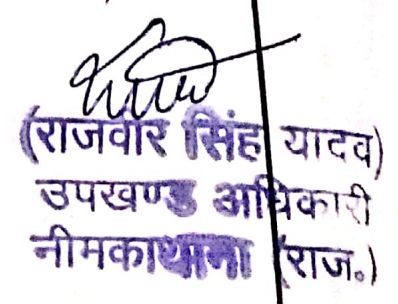 (राजवीर सिंह यादव)
उपखण्ड अधिकारी
नीमकाथाना (राज०)